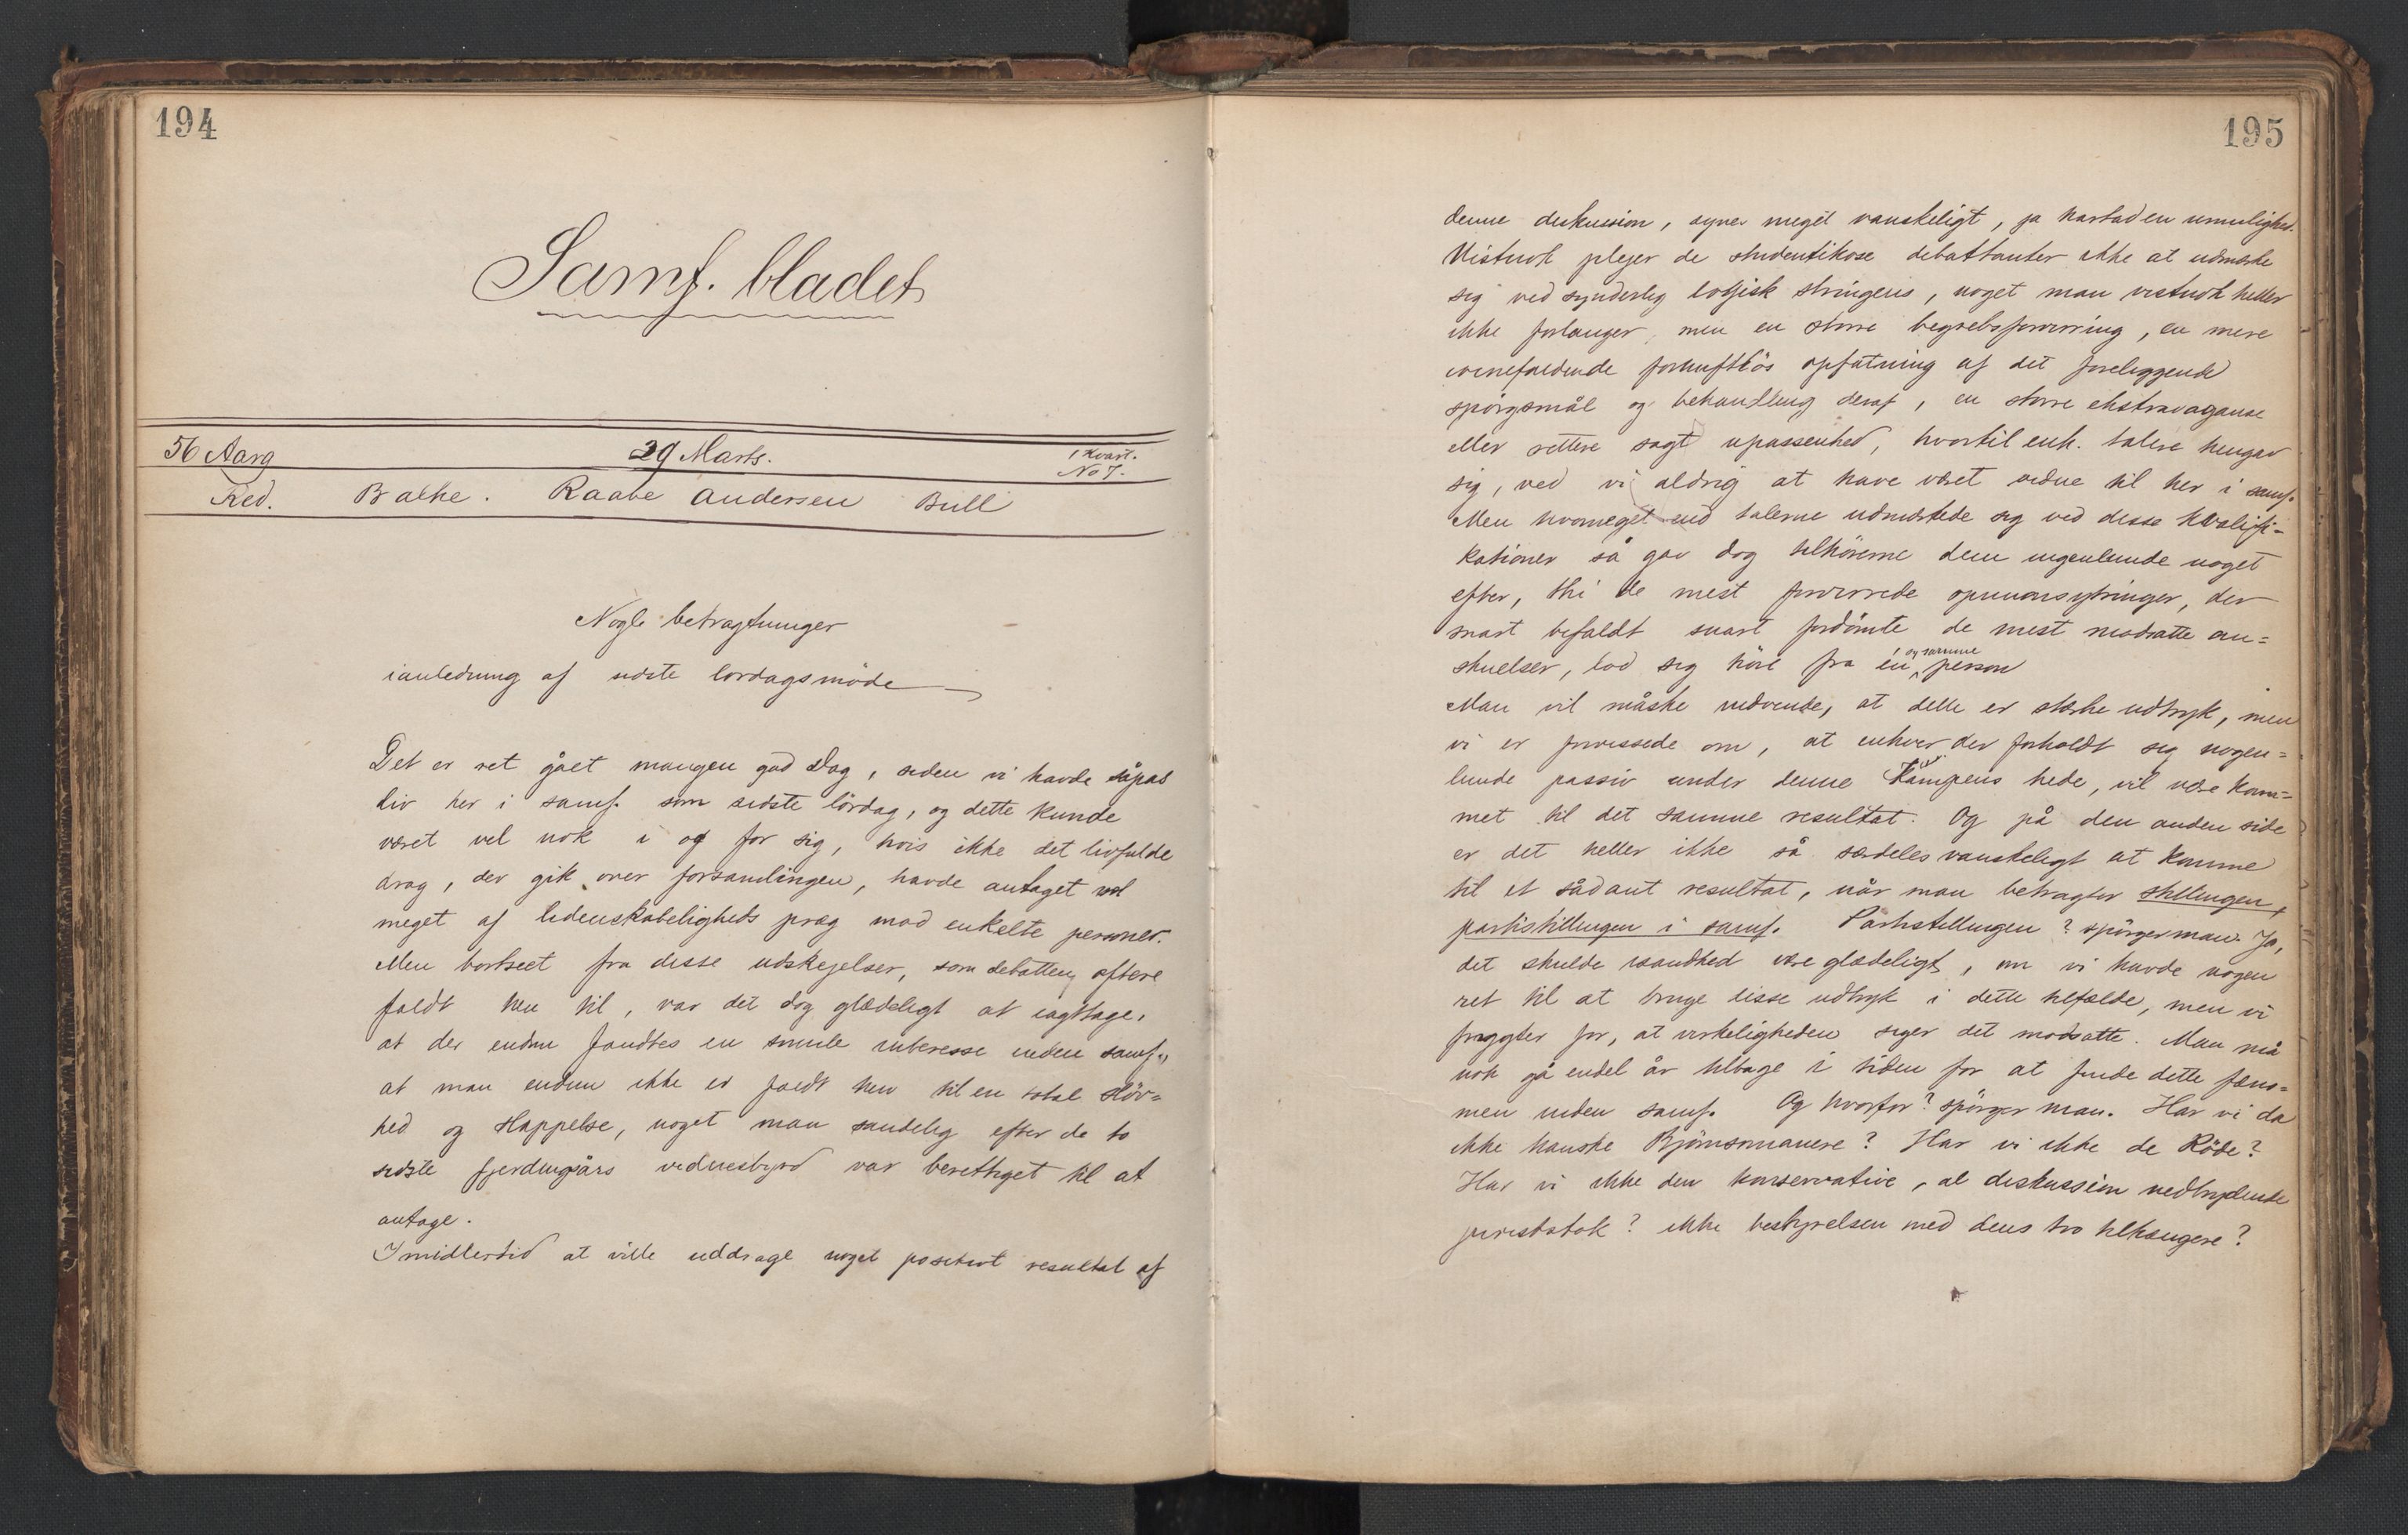 194
Samf. bladet
56 Aarg
29 Marts.
1 Kvart.
No 7.
Red. Bakke. Raabe Andersen Bull
Nogle betragtninger
ianledning af sidste lørdagsmøde
Det er ret gået mangen god Dag, siden vi havde såpas
liv her i samf. som sidste lördag, og dette kunde
været vel nok i og for sig, hvis ikke det livfulde
drag, der gik over forsamlingen, havde antaget vel
meget af lidenskabeligheds præg mod enkelte personer.
Men bortseet fra disse udskejelser, som debatten oftere
faldt hen til, var det dog glædeligt at iagttage,
at der endnu fandtes en smule interesse inden samf.,
at man endnu ikke er faldt hen til en total slöv=
hed og slappelse, noget man sandelig efter de to
sidste fjerdingårs vidnesbyrd var berettiget til at
antage.
Imidlertid at ville uddrage noget positivt resultat af
195
denne diskussion, synes meget vanskeligt, ja hartad en umulighed.
Vistnok plejer de studentikose debattanter ikke at udmærke
sig ved synderlig logisk stringens, noget man vistnok heller
ikke forlanger, men en større begrebsforvirring, en mere
iörnefaldende fornuftlös opfatning af det foreliggende
spörgsmål og behandling deraf, en større ekstravaganse
eller rettere sagt upassenhed, hvortil enk. talere hengav
sig, ved vi aldrig at have været vidne til her i samf.
Men hvormeget end talerne udmærkede sig ved disse kvalifi=
kationer så gav dog tilhörerne dem ingenlunde noget
efter, thi de mest forvirrede opinionsytringer, der
snart bifaldt snart fordömte de mest modsatte an=
skuelser, lod sig höre fra én og samme person
Man vil måske indvende, at dette er stærke udtryk, men
vi er forvissede om, at enhver der forholdt sig nogen=
lunde passiv under denne kampens hede, vil være kom=
met til det samme resultat. Og på den anden side
er det heller ikke så særdeles vanskeligt at komme
til et sådant resultat, når man betragter stillingen,
partistillingen i samf. Partistillingen? spörger man. Ja,
det skulde isandhed være glædeligt, om vi havde nogen
ret til at bruge disse udtryk i dette tilfælde, men vi
frygter for, at virkeligheden siger det modsatte. Man må
nok gå endel år tilbage i tiden for at finde dette fæno=
men inden samf. Og hvorfor? spörger man. Har vi da
ikke kanske Björnsonianere? Har vi ikke de Röde?
Har vi ikke den konservative, al diskussion nedbrydende
juristblok? ikke bestyrelsen med dens tro tilhængere?